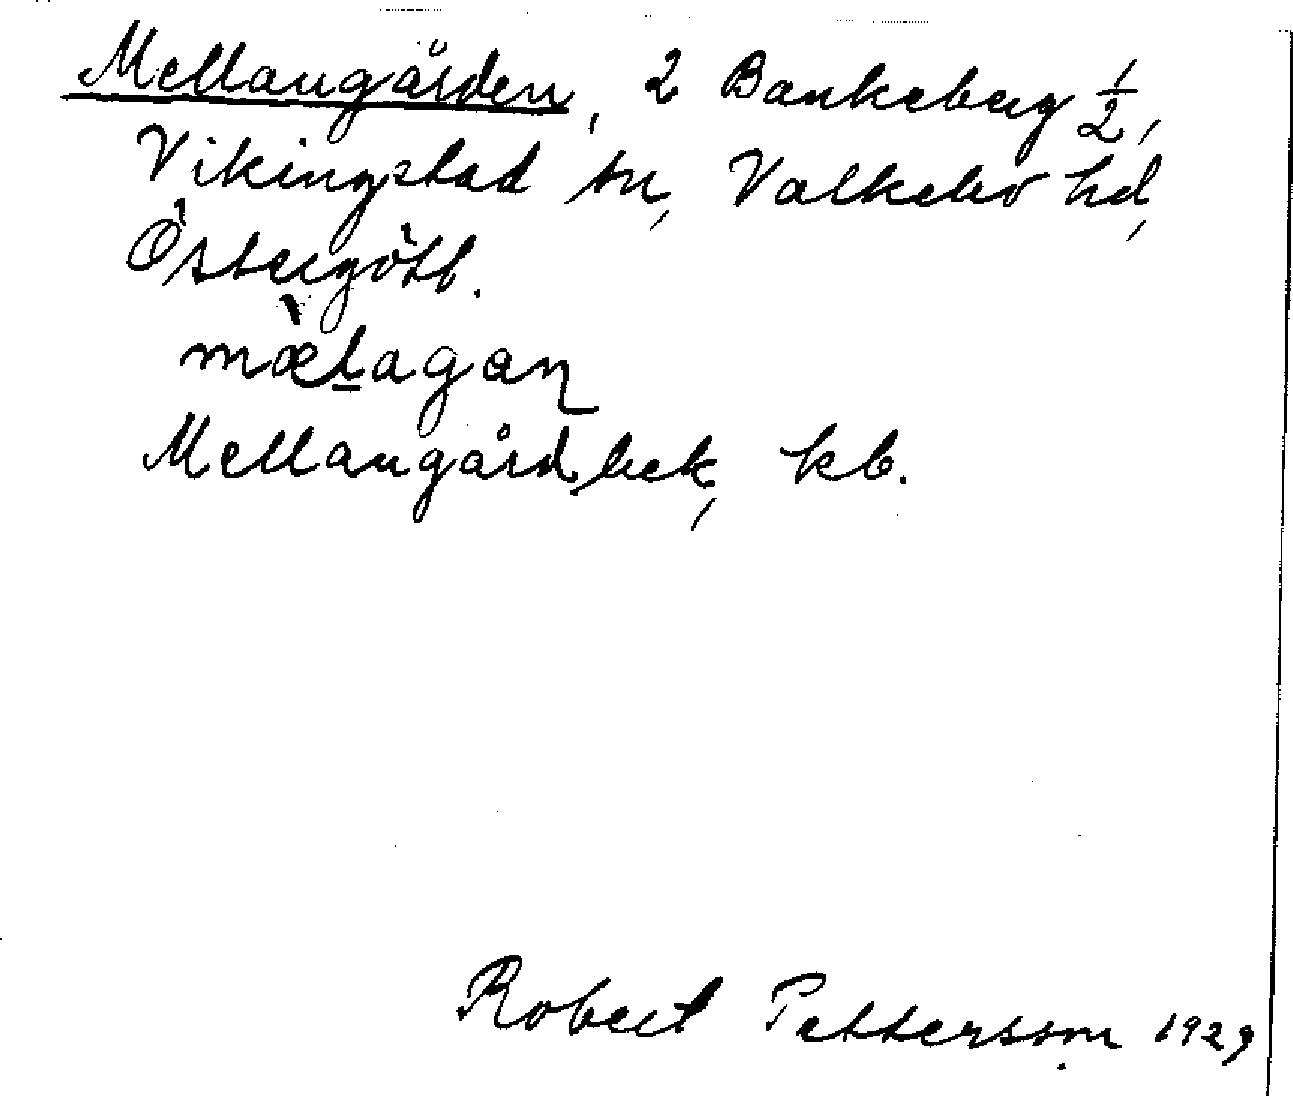 Mellangården, 2 Bankeberg 1/2,
Vikingstad sn, Valkebo hd,
Östergötl.
mæ̀l̠agaɳ
Mellangård, bek, kb.
Robert Pettersson 1929